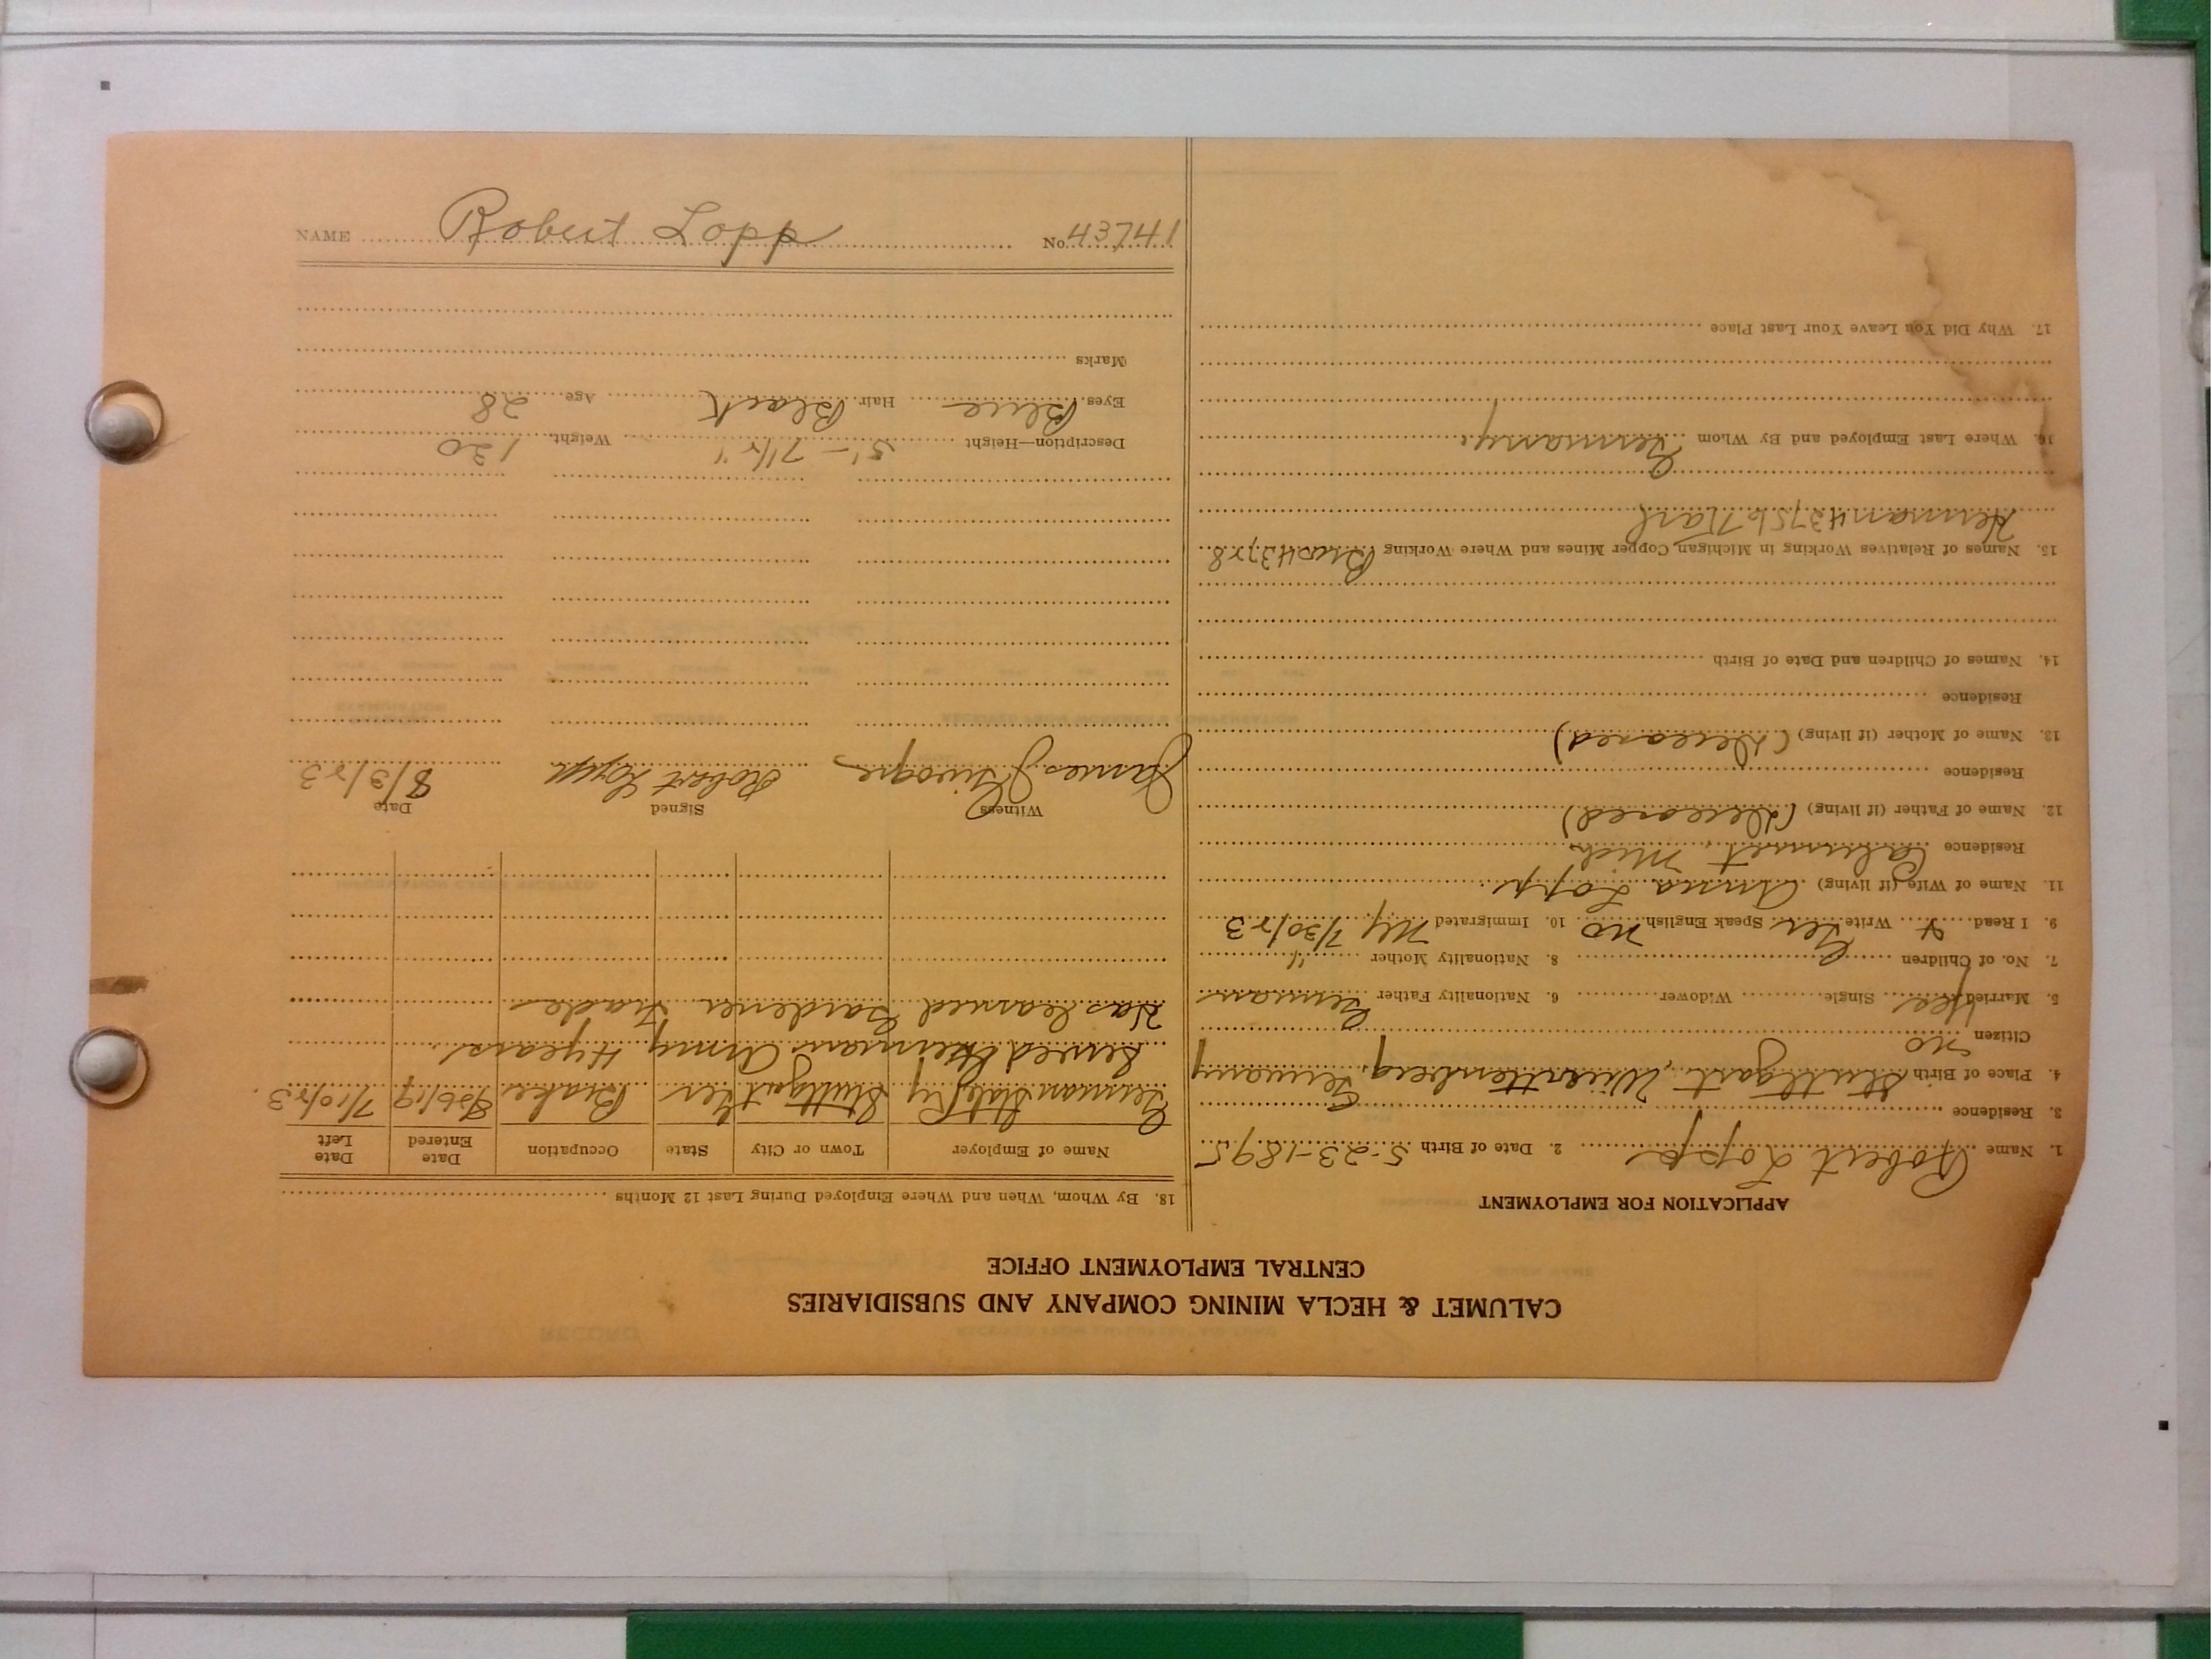 NAME Robert Lopp No. 43741
CALUMET & HECLA MINING COMPANY AND SUBSIDIARIES
CENTRAL EMPLOYMENT OFFICE
APPLICATION FOR EMPLOYMENT
1. Name Robert Lopp 2. Date of Birth 5-23-1895
3. Residence
4. Place of Birth Stuttgart, Wuerttemberg, Germany
Citizen no
5. Married yes Single Widower 6. Nationality Father German
7. No. of Children 8. Nationality Mother "
9. I Read & Write Ger Speak English no 10. Immigrated NY 7/30/23
11. Name of Wife (if living) Anna Lopp
Residence Calumet Mich
12. Name of Father (if living) (Deceased)
Residence
13. Name of Mother (if living) (Deceased)
Residence
14. Names of Children and Date of Birth
15. Names of Relatives Working in Michigan Copper Mines and Where Working Bros 43728
Herman 43756 Karl
16. Where Last Employed and By Whom Germany
17. Why Did You Leave Your Last Place
18. By Whom, When and Where Employed During Last 12 Months
Name of Employer Town or City State Occupation Date Entered Date Left
German State Ry Stuttgart Ger Brake 7/10/23
Served German Army 4 years
Has learned Gardener Trade
Witness Signed Date
James Robert Lopp 8/3/23
Description—Height 5'-7 1/2" Weight 130
Eyes Blue Hair Black Age 28
Marks